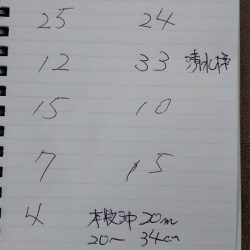 25 24
12 33 清水枠
15 10
7 15
4 本牧沖 20m
20～34cm